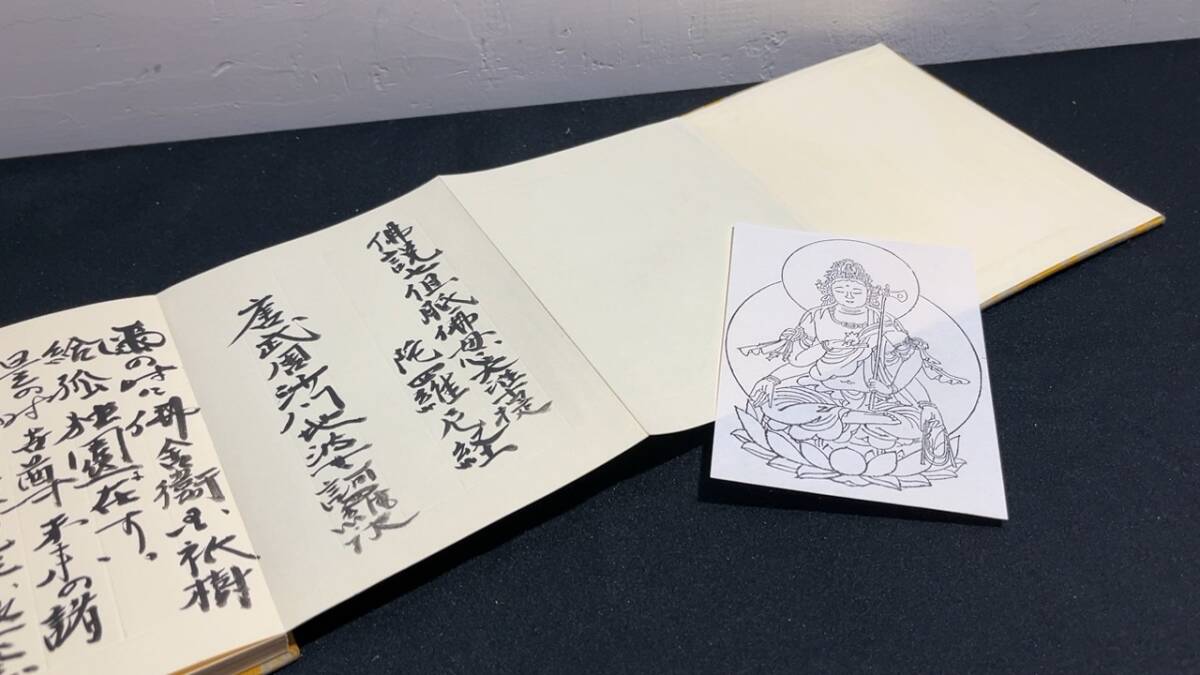 佛説七倶胝佛母心大准提
陀羅尼経
唐武周沙門地婆訶羅訳
の時に佛舎衛国、祇樹
給孤独園に在す。
世尊未来の諸